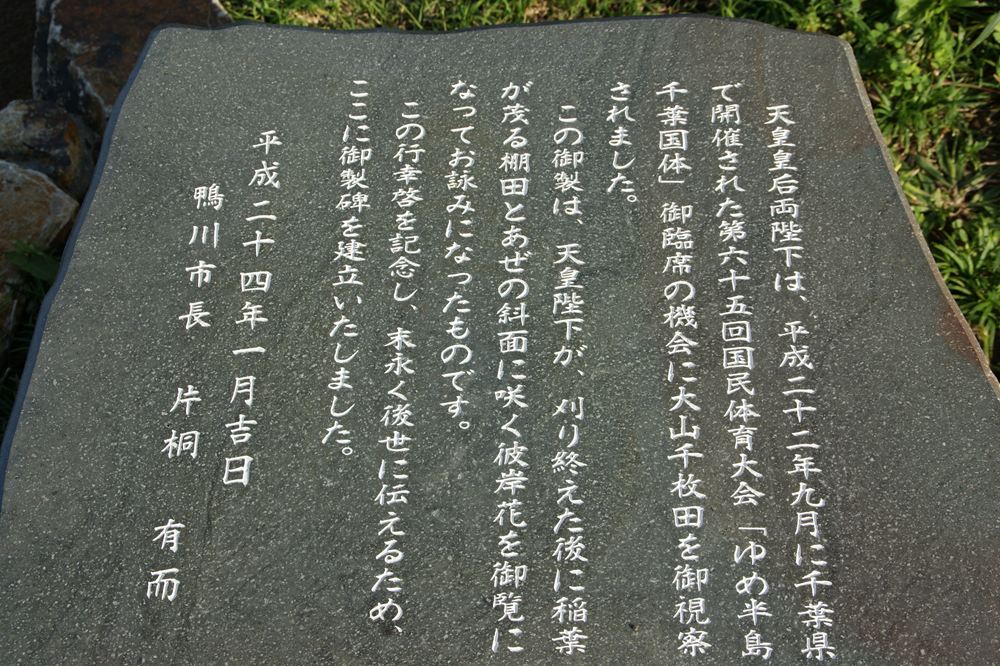 天皇皇后両陛下は、平成二十二年九月に千葉県
で開催された第六十五回国民体育大会「ゆめ半島
千葉国体」御臨席の機会に大山千枚田を御視察
されました。
この御製は、天皇陛下が、刈り終えた後に稲葉
が茂る棚田とあぜの斜面に咲く彼岸花を御覧に
なってお詠みになったものです。
この行幸啓を記念し、末永く後世に伝えるため、
ここに御製碑を建立いたしました。
平成二十四年一月吉日
鴨川市長 片桐 有而